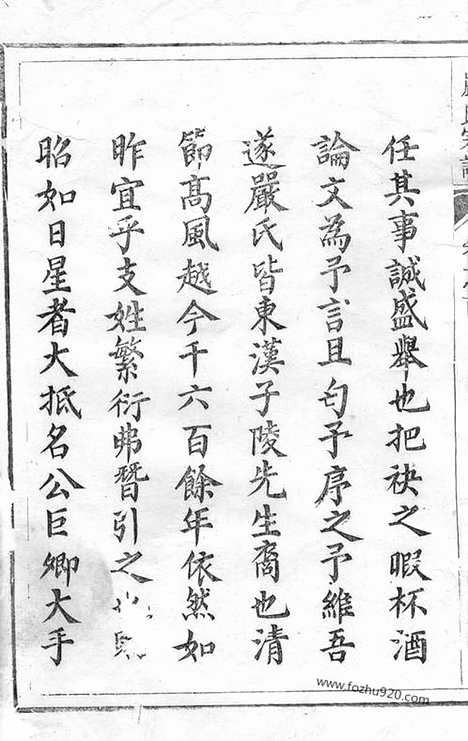 任其事誠盛舉也把袂之暇杯酒
論文為予言且匄予序之予維吾
遂嚴氏皆東漢子陵先生裔也清
節高風越今千六百餘年依然如
昨宜乎支姓繁衍弗替引之
昭如日星者大抵名公巨卿大手
www.fozhu920.com